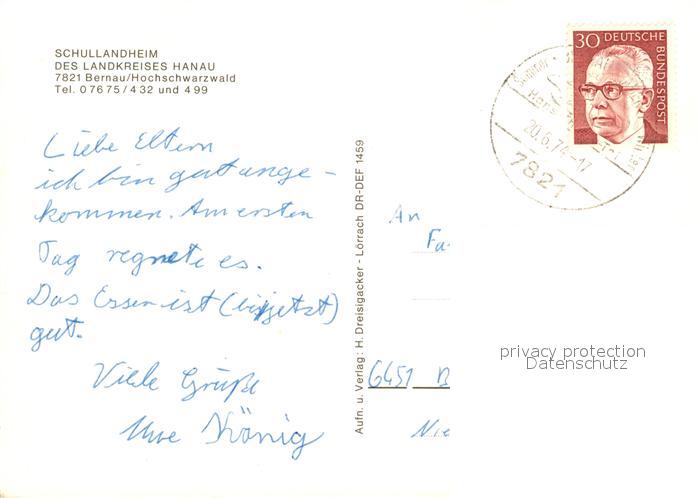 SCHULLANDHEIM
DES LANDKREISES HANAU
7821 Bernau/Hochschwarzwald
Tel. 07675/432 und 499
Liebe Eltern
ich bin gut ange-
kommen. Am ersten
Tag regnete es.
Das Essen ist (bis jetzt)
gut.
Viele Grüße
Uwe König
Aufn. u. Verlag: H. Dreisigacker - Lörrach DR-DEF 1459
30 DEUTSCHE BUNDESPOST
20.6.74-17
7821
An
Fa
6451 B
Nie
privacy protection
Datenschutz